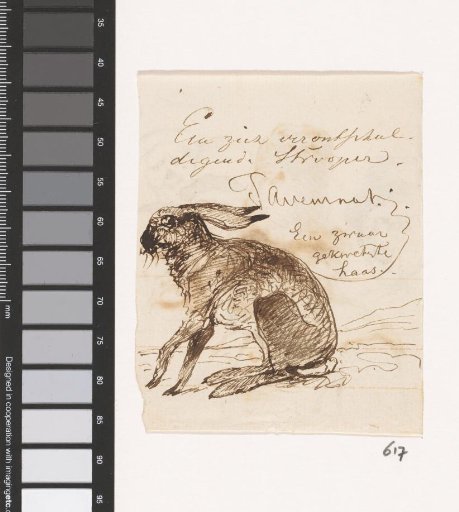 Een zich verontschul-
digende Strooper.
Tavernat.
Een zwaar
gekwetste
haas.
617
35
40
45
50
55
60
65
70
75
80
85
90
95
mm
Designed in cooperation with imagingetc.